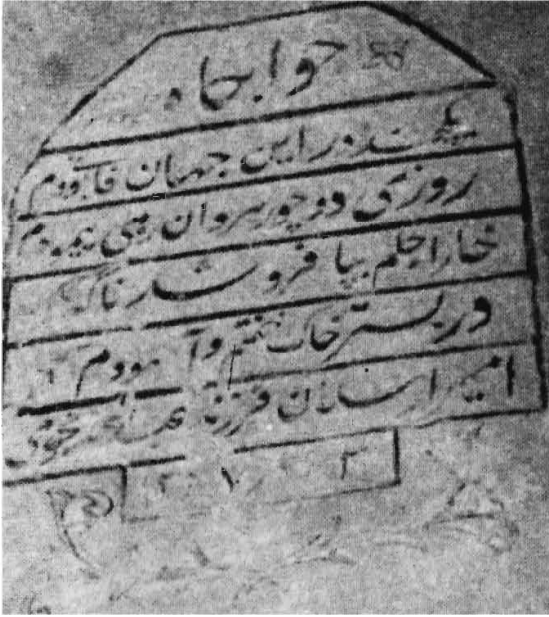 خوابگاه
یکچند در این جهان فانی بودم
روزی دو چو رهروان رهی پیمودم
خار اجلم بپا فرو شد ناگاه
در بستر خاک خفتم و آسودم
امیر ارسلان فرزند